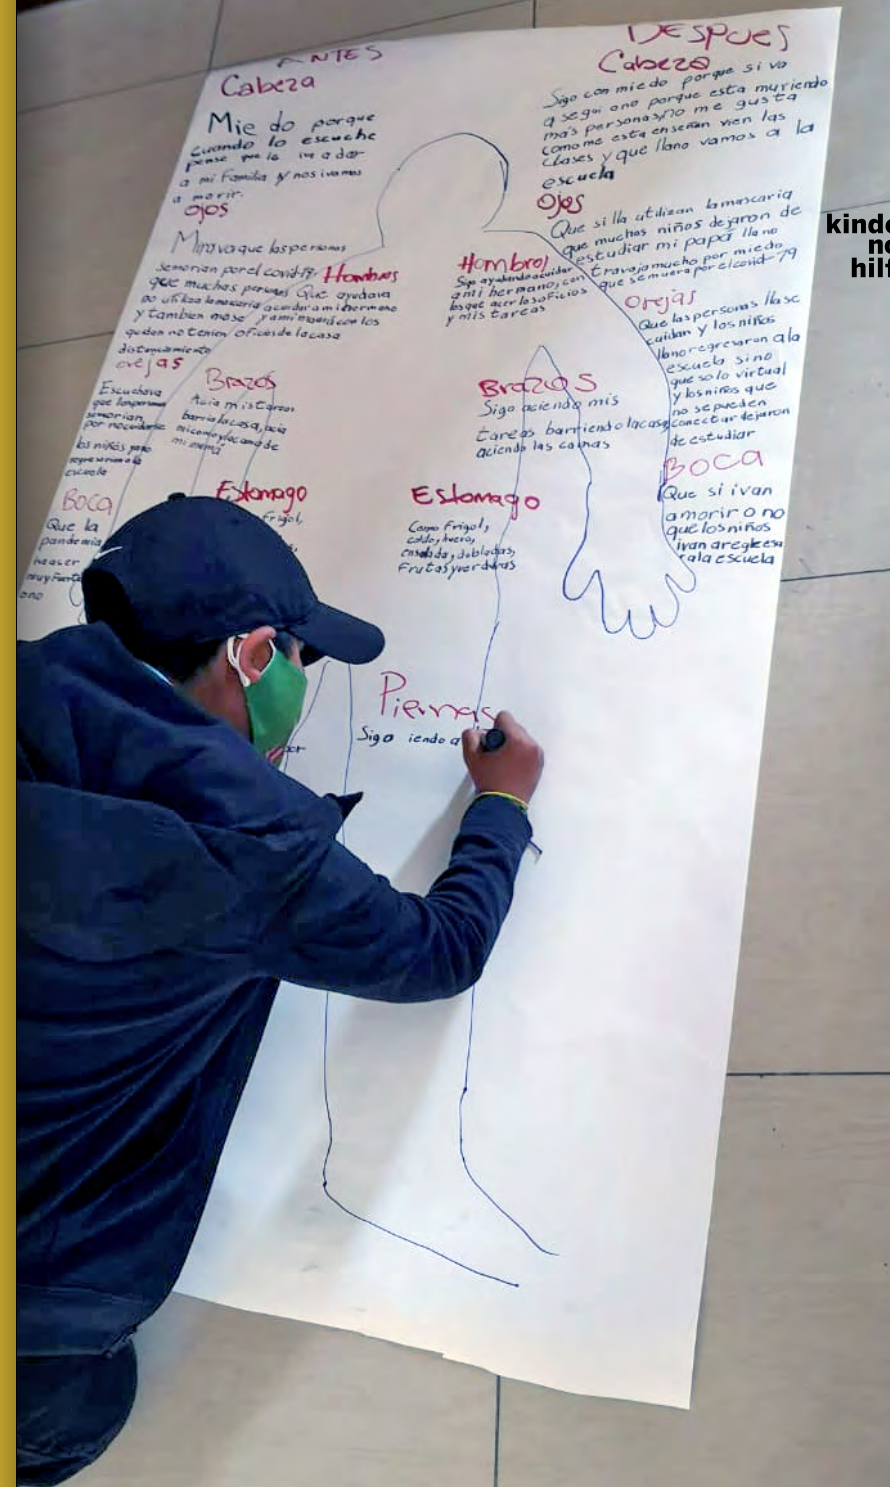 ANTES
Cabeza
Miedo porque
cuando lo escuche
pense que le iva a dar
a mi Familia y nos ivamos
a morir.
Ojos
Mirava que las personas
semorian por el covid-19.
que muchas personas
no utiliza la mascaria
y tambien no se
queden no tenien
distanciamiento
Hombros
Que ayudava
acuidar a mi hermano
y a mi mamá con los
oficios de la casa
orejas
Escuchava
que las personas
semorian
por no cuidarse
los niños ya no
regresarian a la
escuela
Brazos
Acia mis tareas
barria la casa, acia
mi cama y la cama de
mi mamá
BOCA
Que la
pandemia
iva aser
muy Fuerte
o no
Estomago
Frigol,
DESPUES
Cabeza
Sigo con miedo porque si va
a segui o no porque esta muriendo
mas personas, no me gusta
como me esta enseñan vien las
clases y que llano vamos a la
escuela
Ojos
Que si lla utilizan la mascaria
que muchos niños dejaron de
estudiar mi papá lla no
travaja mucho por miedo
que se muera por el covid-19
Hombros
Sigo ayudando acuidar
a mi hermano, con
los que acer los oficios
y mis tareas
Orejas
Que las personas lla se
cuidan y los niños
lla no regresaron a la
escuela sino
que solo virtual
y los niños que
no se pueden
conectar dejaron
de estudiar
Brazos
Sigo aciendo mis
tareas barriendo la casa
aciendo las camas
BOCA
Que si ivan
a morir o no
que los niños
ivan a regresa
r a la escuela
Estomago
Como Frigol,
caldo, huevo,
ensalada, dobladas,
Frutas y verduras
Piernas
Sigo iendo a
kinde
no
hilf